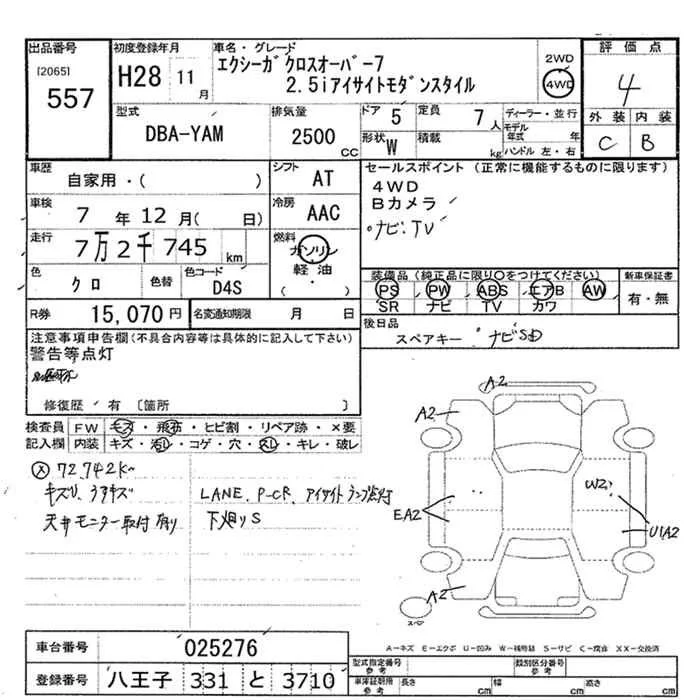 出品番号
[2065]
557
初度登録年月
H28 11月
車名・グレード
エクシーガ クロスオーバー7
2.5i アイサイトモダンスタイル
2WD
4WD
評価点
4
外装 内装
C B
型式
DBA-YAM
排気量
2500 CC
ドア 5
定員 7人
形状 W
積載 kg
ディーラー・並行
モデル年式 年
ハンドル 左・右
車歴
自家用・( )
シフト AT
車検 7年12月( 日)
冷房 AAC
走行 7万2千745km
燃料 ガソリン
軽油
( ・ )
色 クロ
色替
色コード D4S
R券 15,070円
名変通知期限 月 日
セールスポイント (正常に機能するものに限ります)
4WD
Bカメラ
ナビ・TV
装備品 (純正品に限り○をつけてください)
PS PW ABS エアB AW
SR ナビ TV カワ
新車保証書
有・無
後日品
スペアキー ナビSD
注意事項申告欄 (不具合内容等は具体的に記入して下さい)
警告等点灯
修復歴 有 [箇所 ]
検査員記入欄
FW キズ・飛石・ヒビ割・リペア跡・×要
内装 キズ・汚れ・コゲ・穴・スレ・キレ・破レ
入 72,742K
キズU、うすキズ
天井モニター取付有り
LANE、P-CR、アイサイトランプ点灯
下廻りS
A2
A2
W2
EA2
U1A2
A2
スペア
A-キズ E-エクボ U-凹み W-補修跡 S-サビ C-腐食 XX-交換済
車台番号 025276
登録番号 八王子 331 と 3710
型式指定番号 参考
類別区分番号 参考
車庫証明用 参考
長さ cm
幅 cm
高さ cm